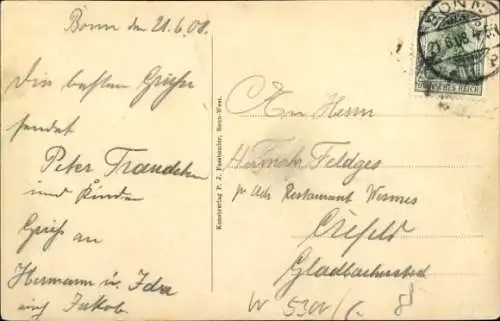 Bonn den 21.6.08.
Die besten Grüße
sendet
Peter
und Kinder
Gruß an
Hermann u. Ida
auch Jakob.
Kunstverlag P. J. Fassbender, Bonn-West.
BONN
21.6.08
DEUTSCHES REICH
An Herrn
Hermann Feldges
pr Adr Restaurant Wermes
Crefeld
Gladbacherstr
W 5300/1